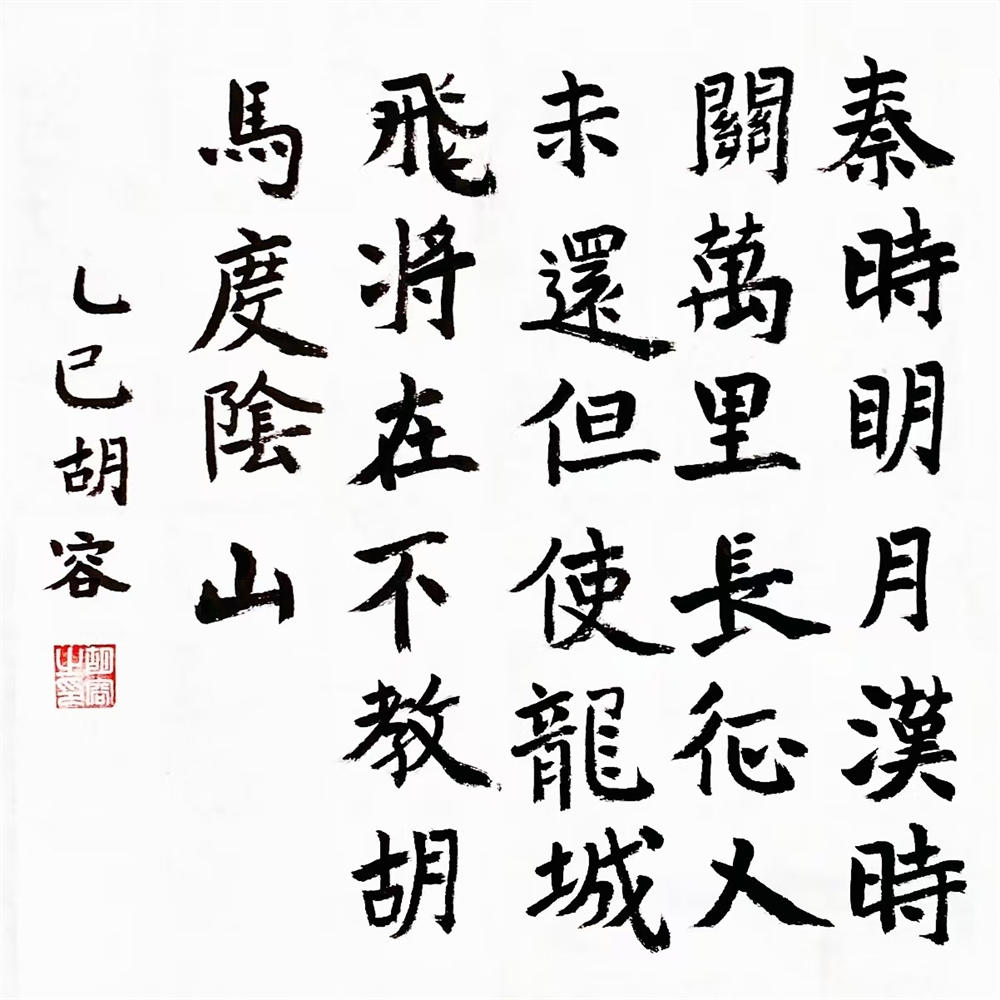 秦時明月漢時
關萬里長征人
未還但使龍城
飛将在不教胡
馬度陰山
乙巳胡容
胡容之印